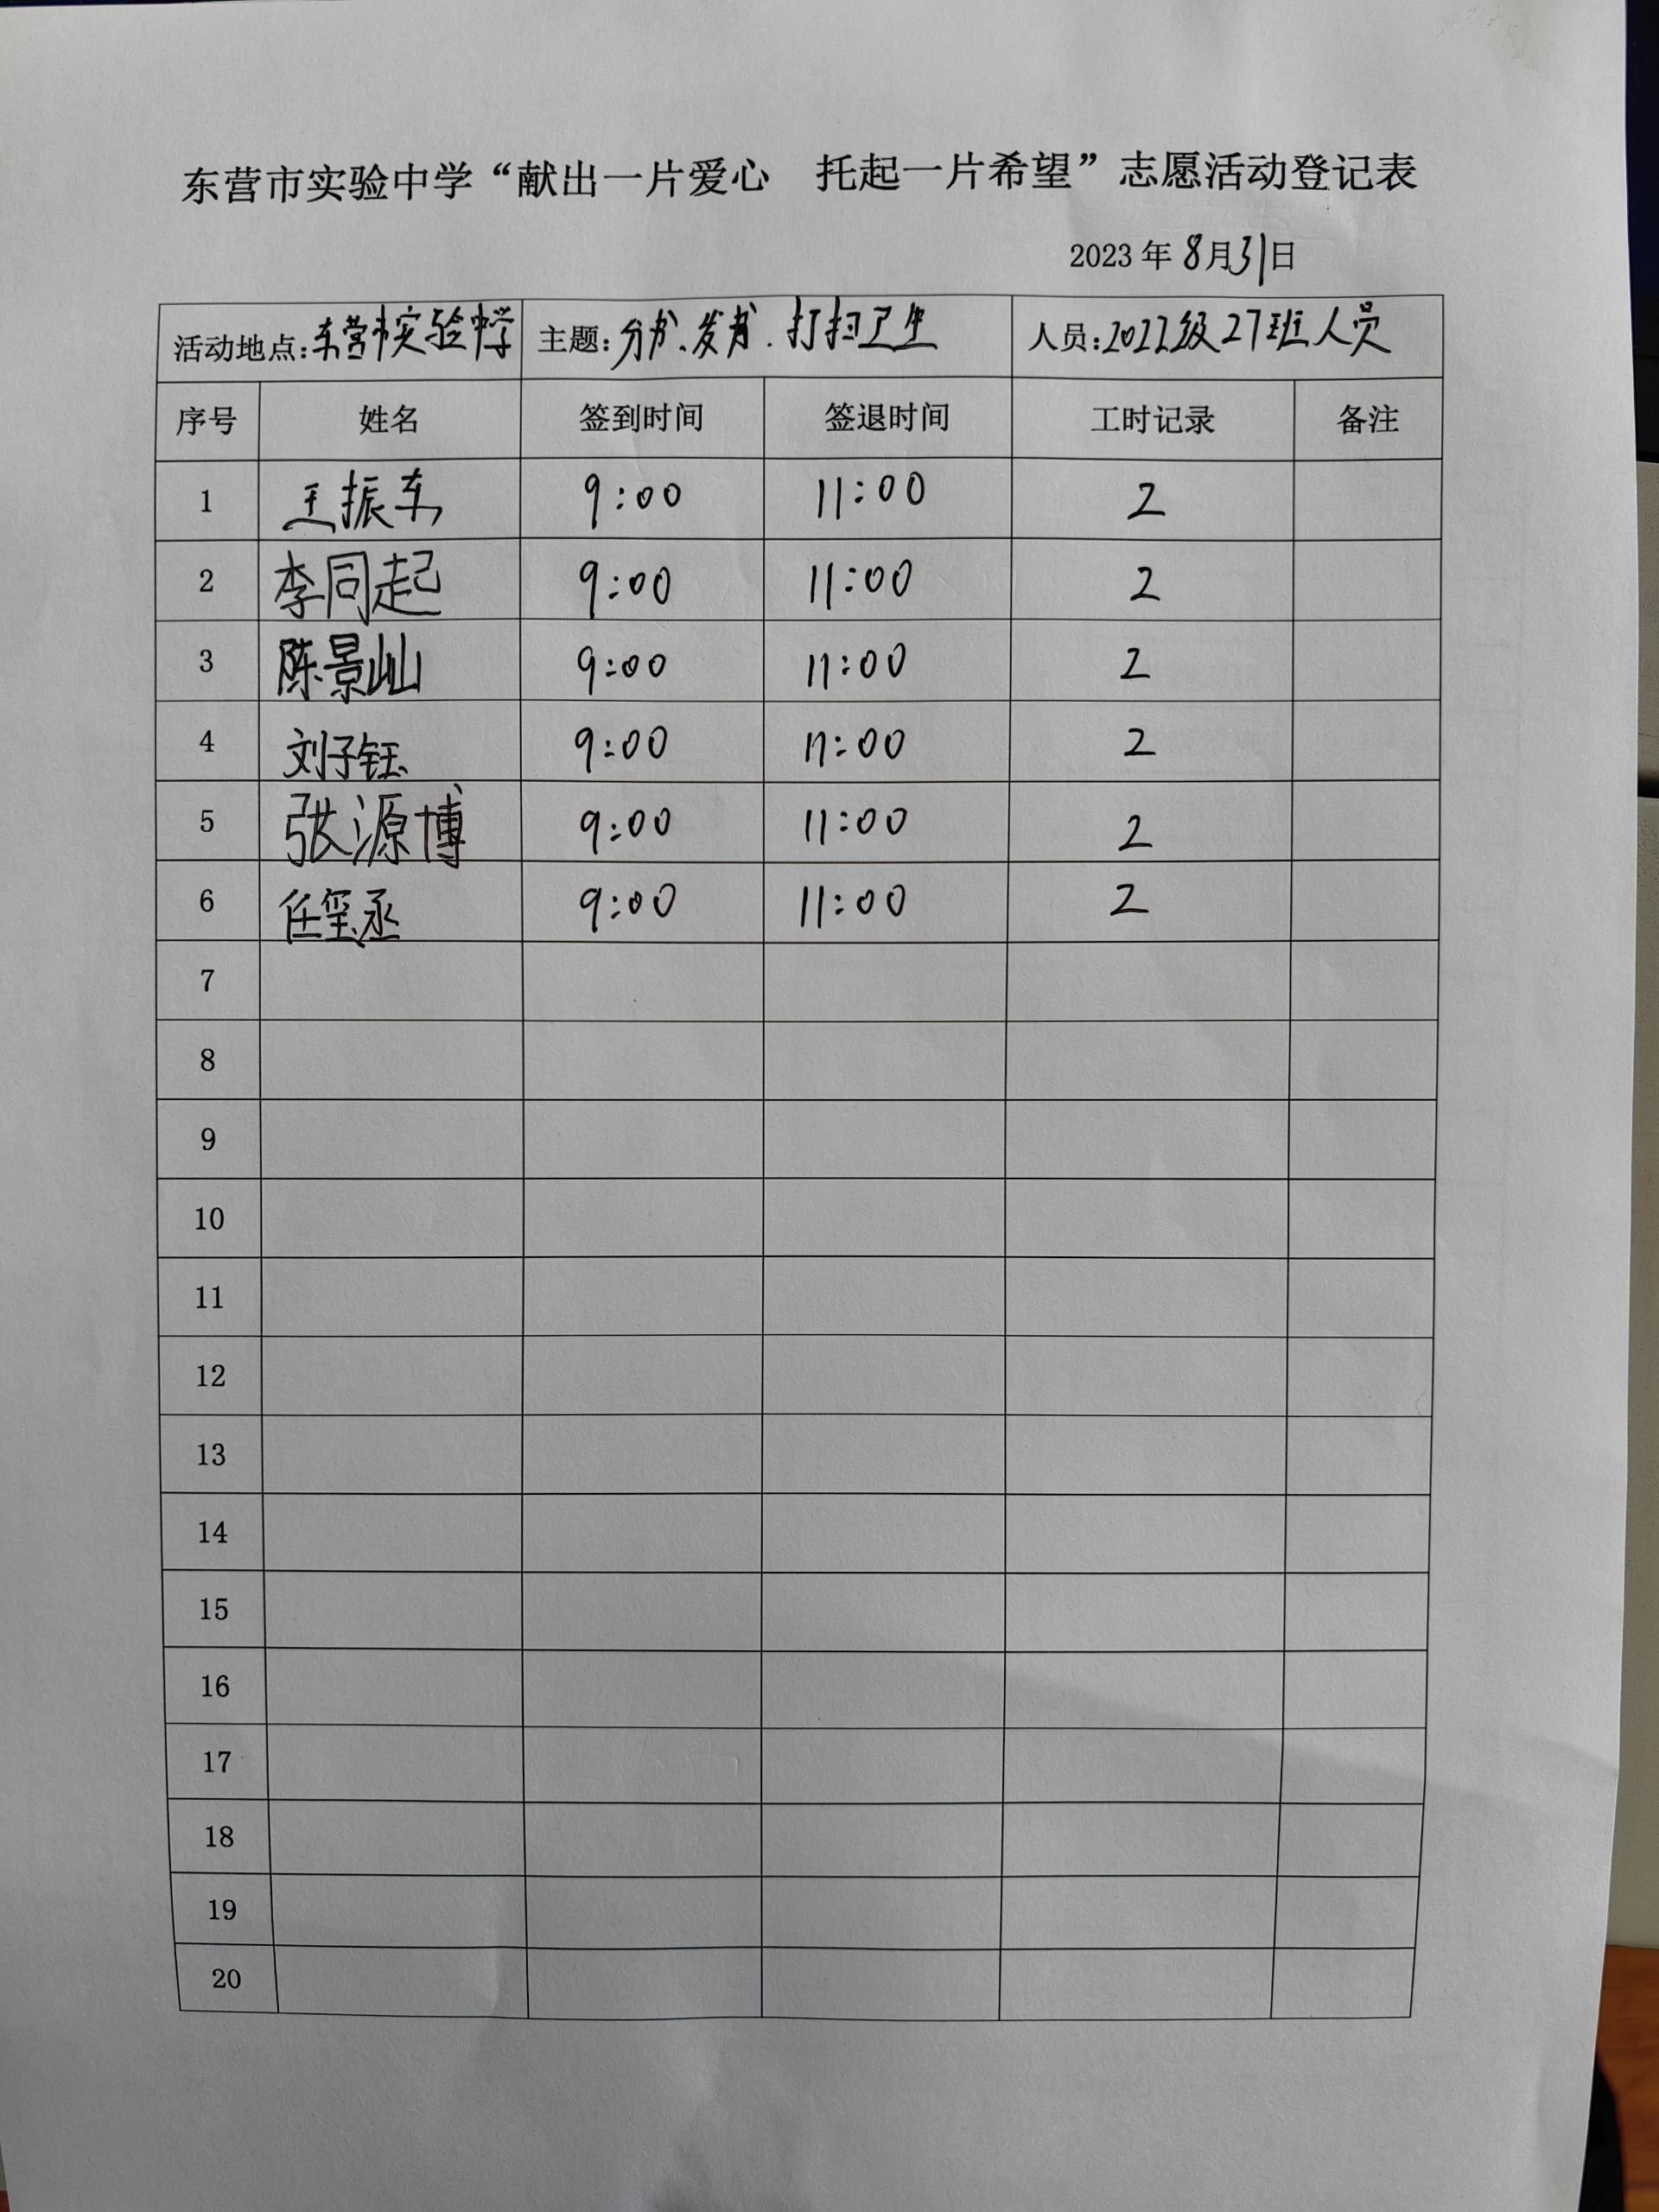 东营市实验中学“献出一片爱心 托起一片希望”志愿活动登记表
2023 年 8月31日
活动地点:东营市实验中学 主题:分书、发书.打扫卫生 人员:2022级27班人员
序号 姓名 签到时间 签退时间 工时记录 备注
1 王振东 9:00 11:00 2
2 李同起 9:00 11:00 2
3 陈景屾 9:00 11:00 2
4 刘子钰 9:00 11:00 2
5 张源博 9:00 11:00 2
6 任玺丞 9:00 11:00 2
7
8
9
10
11
12
13
14
15
16
17
18
19
20